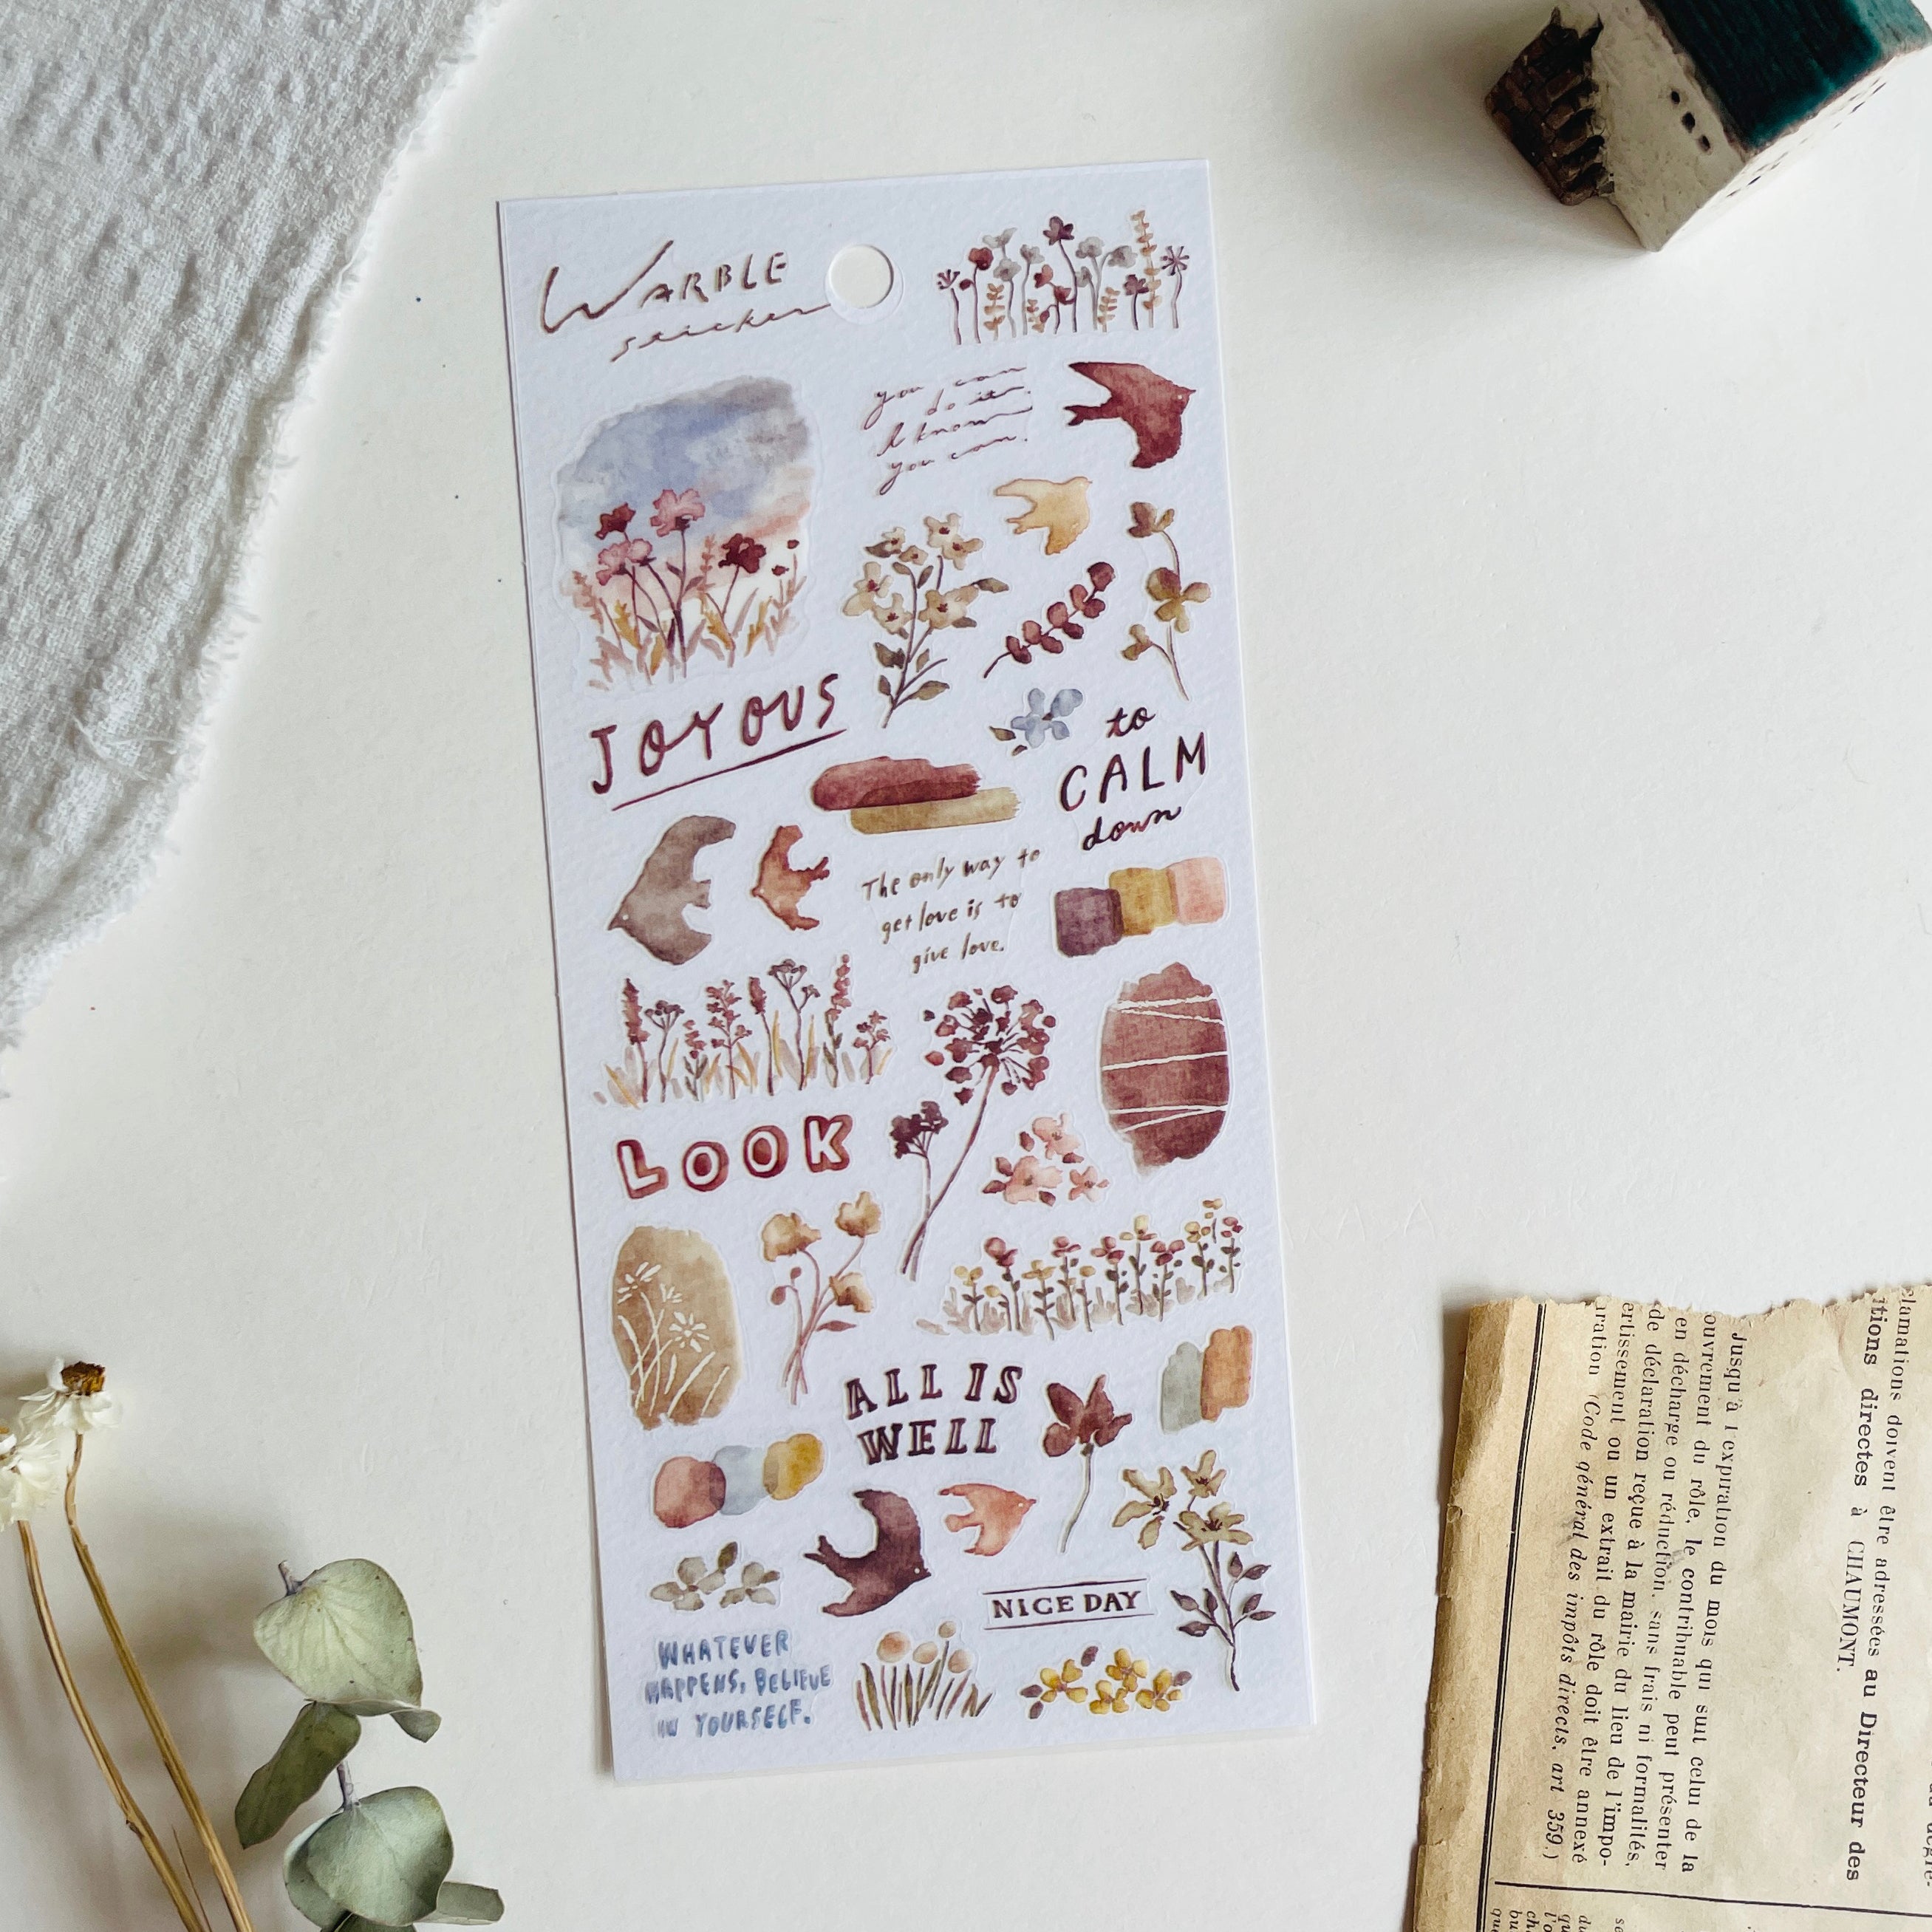 WARBLE
sticker
you can
do it.
I know
you can.
JOYOUS
to
CALM
down
The only way to
get love is to
give love.
LOOK
ALL IS
WELL
NICE DAY
WHATEVER
HAPPENS, BELIEVE
IN YOURSELF.
elamations doivent être adressées au Directeur des
itions directes à CHAUMONT.
Jusqu'à l'expiration du mois qui suit celui de la
ouvrement du rôle, le contribuable peut présenter
en décharge ou réduction, sans frais ni formalités,
de déclaration reçue à la mairie du lieu de l'impo-
ertissement ou un extrait du rôle doit être annexé
aration (Code général des impôts directs, art 359.)